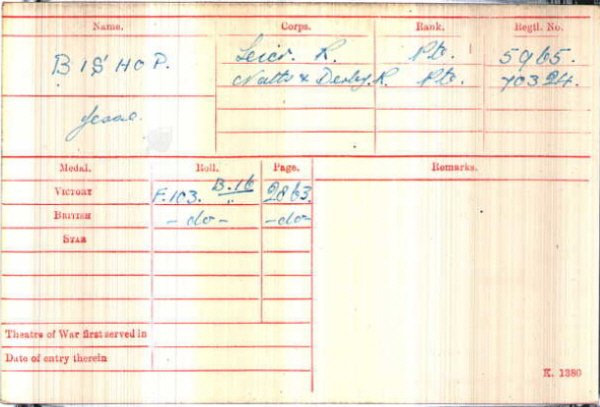 Name. Corps. Rank. Regtl. No.
BISHOP. Leicr. R. Pte. 5965.
Notts & Derby. R. Pte. 70324.
Jesse.
Medal. Roll. Page. Remarks.
VICTORY F.103. B.16 2863.
BRITISH -do- " -do-
STAR
Theatre of War first served in
Date of entry therein
K. 1380